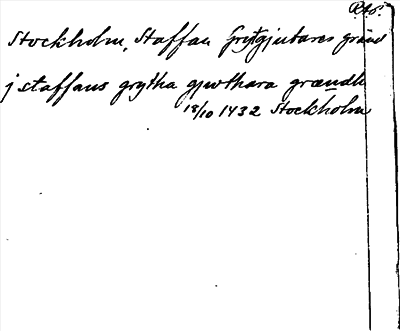 Stockholm, Staffan Grytgjutares gränd
j staffans grytha gjwthara grændh
18/10 1432 Stockholm